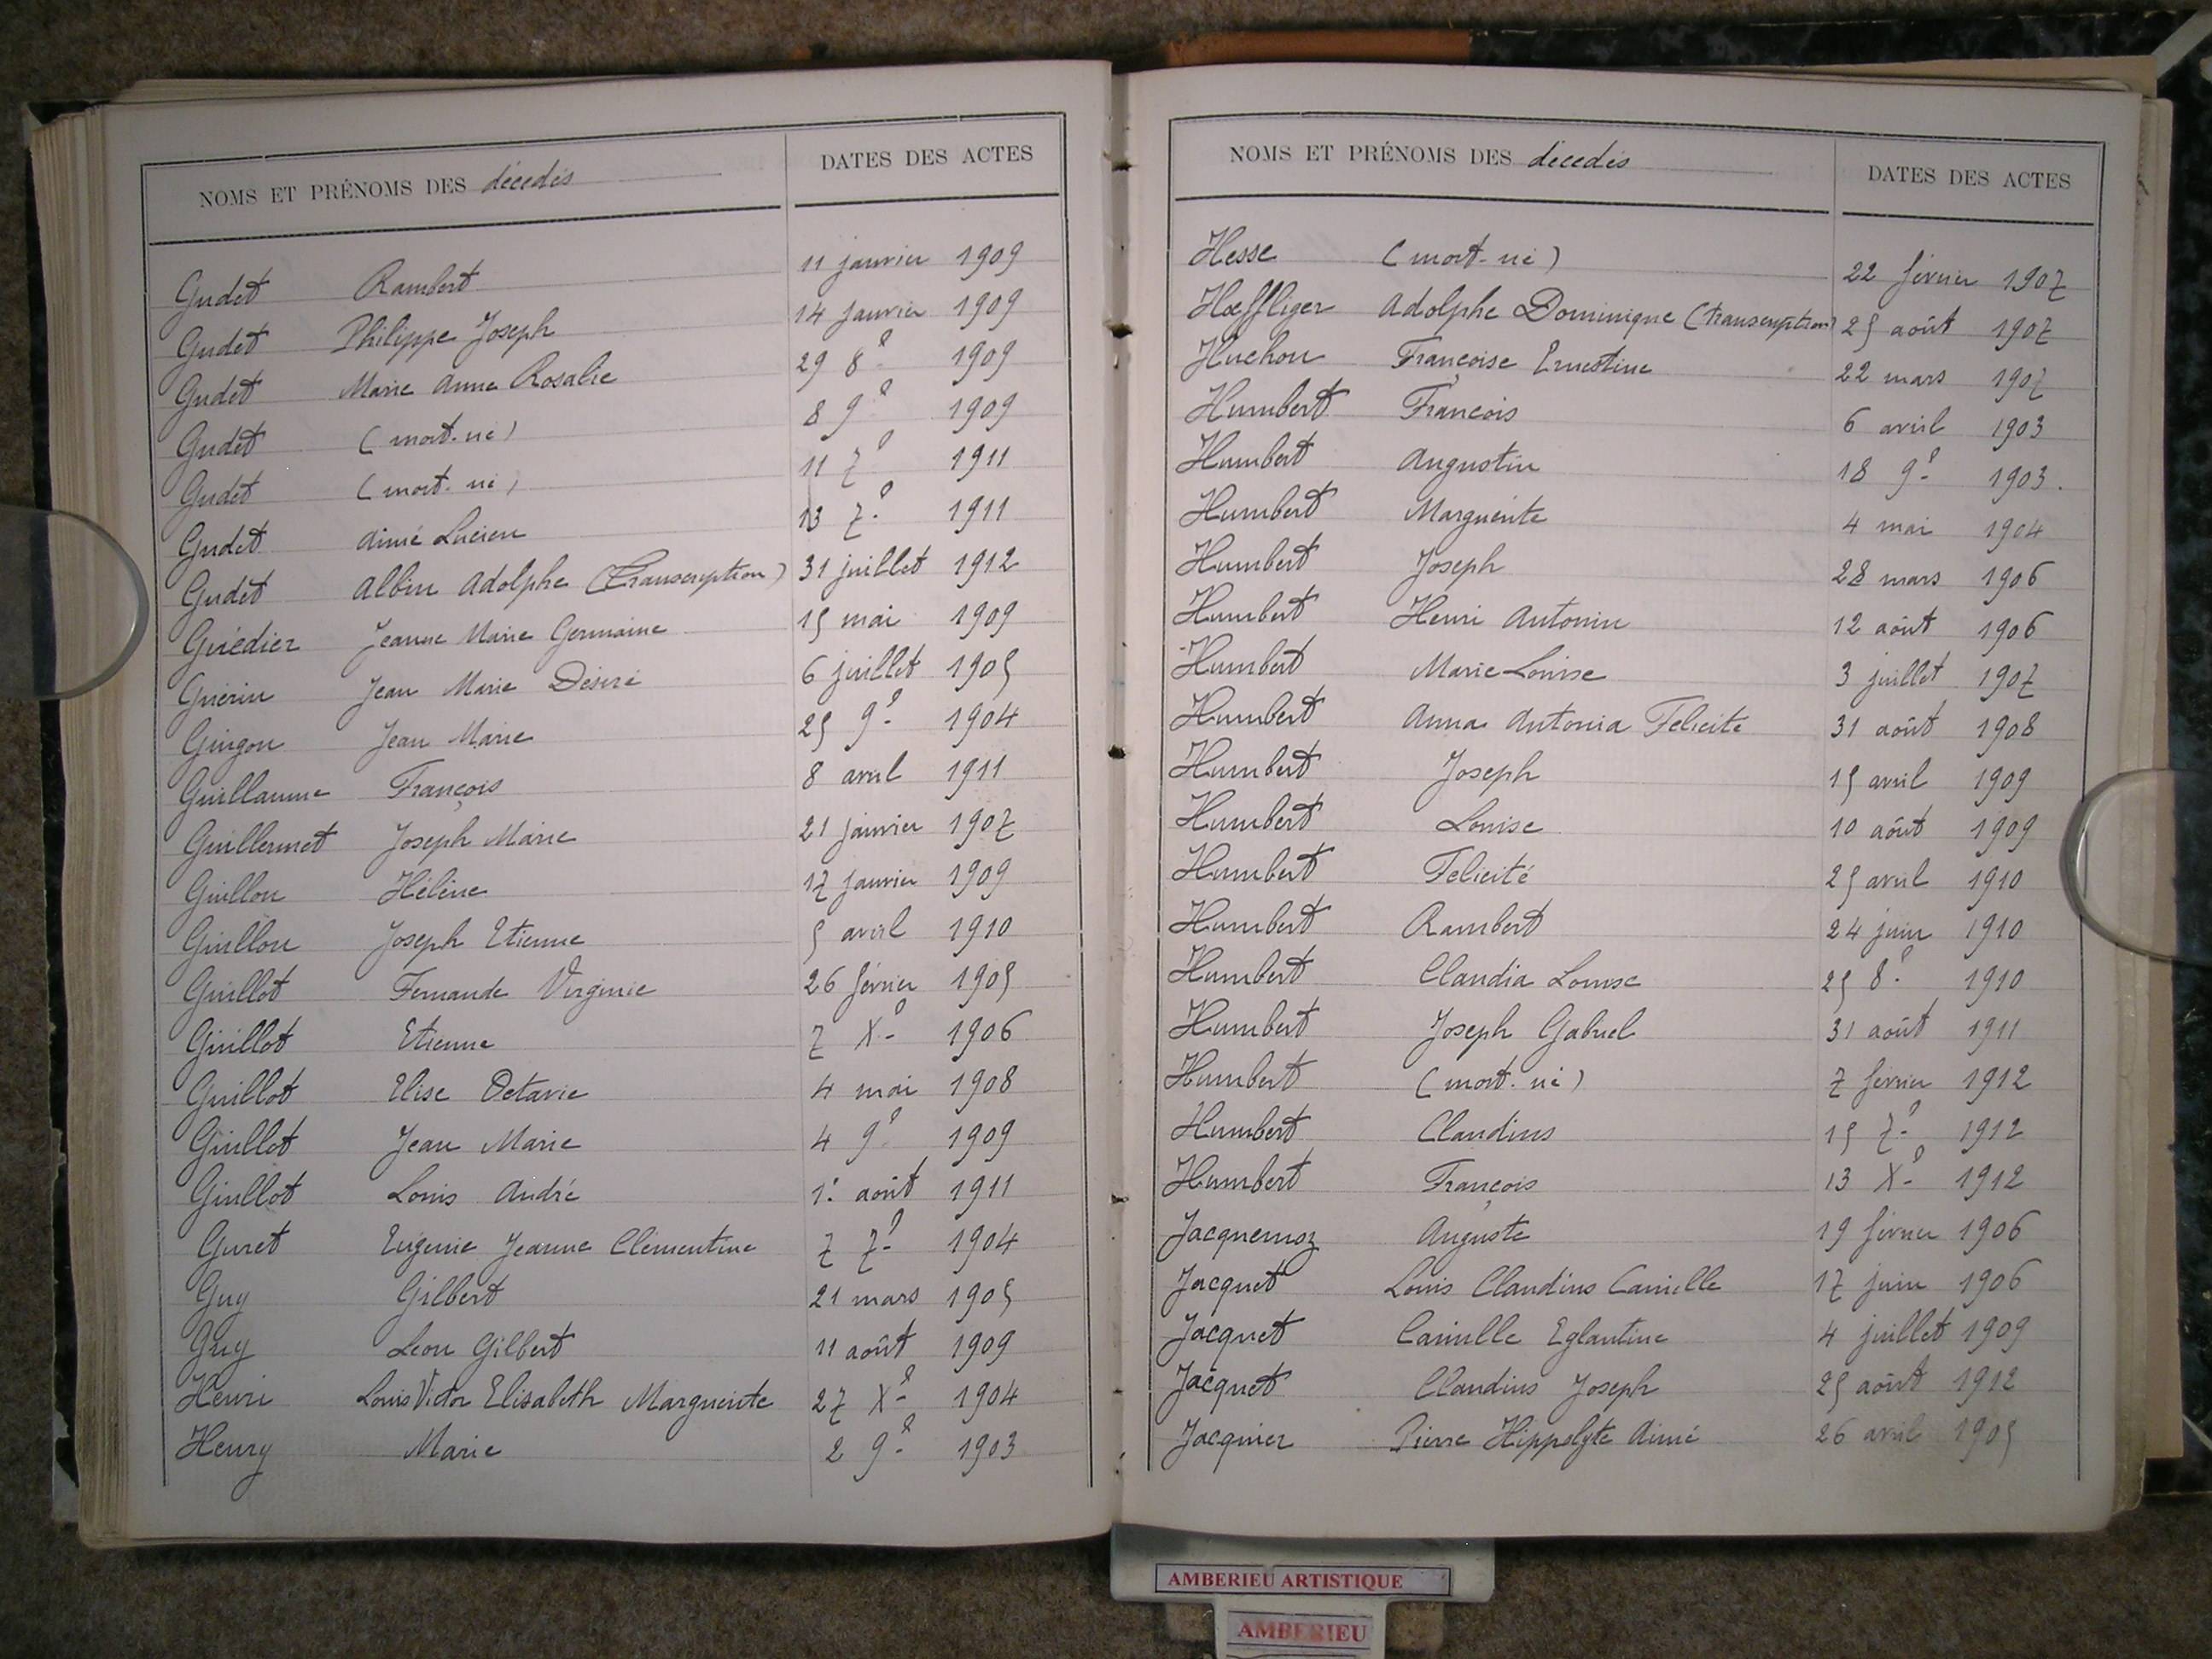 NOMS ET PRÉNOMS DES décédés DATES DES ACTES
Gudet Rambert 11 janvier 1909
Gudet Philippe Joseph 14 janvier 1909
Gudet Marie Anna Rosalie 29 8e 1909
Gudet (mort-né) 8 9e 1909
Gudet (mort-né) 11 7e 1911
Gudet Aimé Lucien 13 7e 1911
Gudet Albin Adolphe (Transcription) 31 juillet 1912
Guédier Jeanne Marie Germaine 15 mai 1909
Guérin Jean Marie Désiré 6 juillet 1905
Guigon Jean Marie 25 9e 1904
Guillaume François 8 avril 1911
Guillermet Joseph Marie 21 janvier 1907
Guillon Hélène 17 janvier 1909
Guillon Joseph Etienne 5 avril 1910
Guillot Fernande Virginie 26 février 1905
Guillot Etienne 7 Xe 1906
Guillot Elise Octavie 4 mai 1908
Guillot Jean Marie 4 9e 1909
Guillot Louis André 1er août 1911
Guret Eugenie Jeanne Clementine 7 7e 1904
Guy Gilbert 21 mars 1905
Guy Leon Gilbert 11 août 1909
Henri Louis Victor Elisabeth Marguerite 27 Xe 1904
Henry Marie 2 9e 1903
NOMS ET PRÉNOMS DES décédés DATES DES ACTES
Hesse (mort-né) 22 février 1907
Hœffliger Adolphe Dominique (transcription) 25 août 1907
Huchon Françoise Ernestine 22 mars 1907
Humbert François 6 avril 1903
Humbert Augustin 18 9e 1903.
Humbert Marguerite 4 mai 1904
Humbert Joseph 28 mars 1906
Humbert Henri Antonin 12 août 1906
Humbert Marie Louise 3 juillet 1907
Humbert Anna Antonia Felicité 31 août 1908
Humbert Joseph 15 avril 1909
Humbert Louise 10 août 1909
Humbert Felicité 25 avril 1910
Humbert Rambert 24 juin 1910
Humbert Claudia Louise 25 8e 1910
Humbert Joseph Gabriel 31 août 1911
Humbert (mort-né) 7 février 1912
Humbert Claudius 15 7e 1912
Humbert François 13 Xe 1912
Jacquemoz Auguste 19 février 1906
Jacquet Louis Claudius Camille 17 juin 1906
Jacquet Camille Eglantine 4 juillet 1909
Jacquet Claudius Joseph 25 août 1912
Jacquier Pierre Hippolyte Aimé 26 avril 1905
AMBERIEU ARTISTIQUE
AMBERIEU